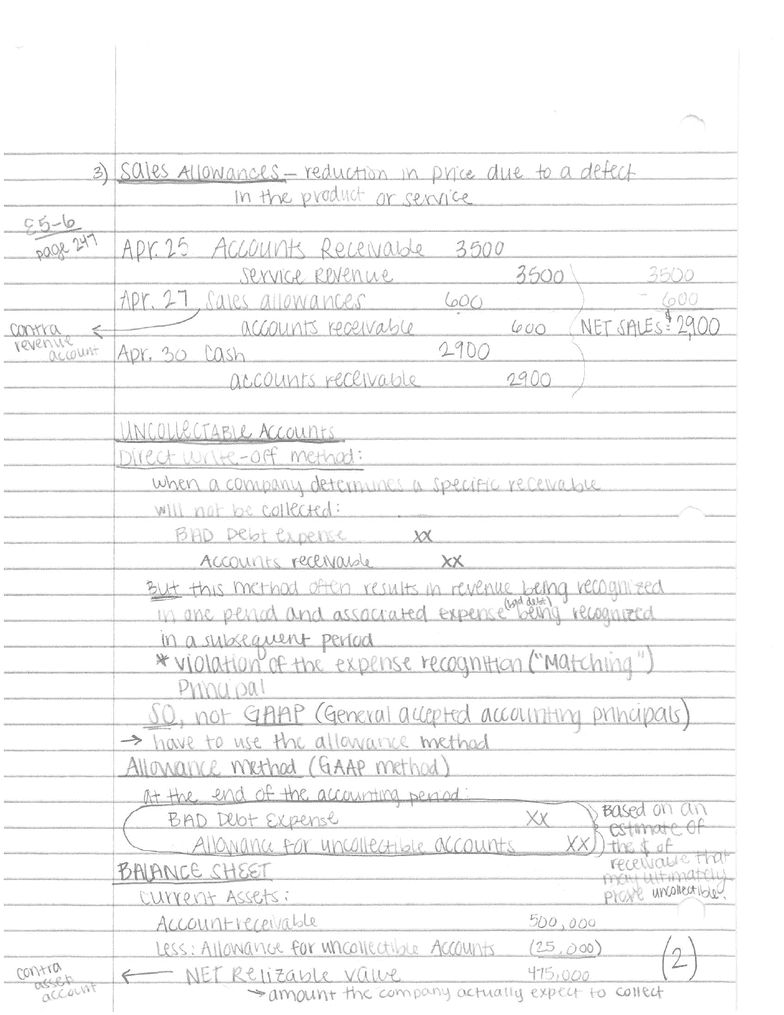 3) Sales Allowances – reduction in price due to a defect
in the product or service
E5-6
page 247
Apr. 25 Accounts Receivable 3500
service revenue 3500 3500
Apr. 27 Sales allowances 600 - 600
contra revenue account
accounts receivable 600 NET SALES = $2,900
Apr. 30 Cash 2900
accounts receivable 2900
UNCOLLECTABLE ACCOUNTS
Direct write-off method:
when a company determines a specific receivable
will not be collected:
BAD Debt expense XX
Accounts receivable XX
But this method often results in revenue being recognized
in one period and associated expense (bad debt) being recognized
in a subsequent period
* violation of the expense recognition ("Matching")
Principal
SO, not GAAP (General accepted accounting principals)
→ have to use the allowance method
Allowance method (GAAP method)
at the end of the accounting period:
BAD Debt Expense XX
Allowance for uncollectible accounts XX
Based on an
estimate of
the $ of
receivable that
may ultimately
prove uncollectible.
BALANCE SHEET
Current Assets:
Account receivable 500,000
Less: Allowance for uncollectible Accounts (25,000)
contra asset account
← NET Relizable value 475,000
→ amount the company actually expect to collect
(2)